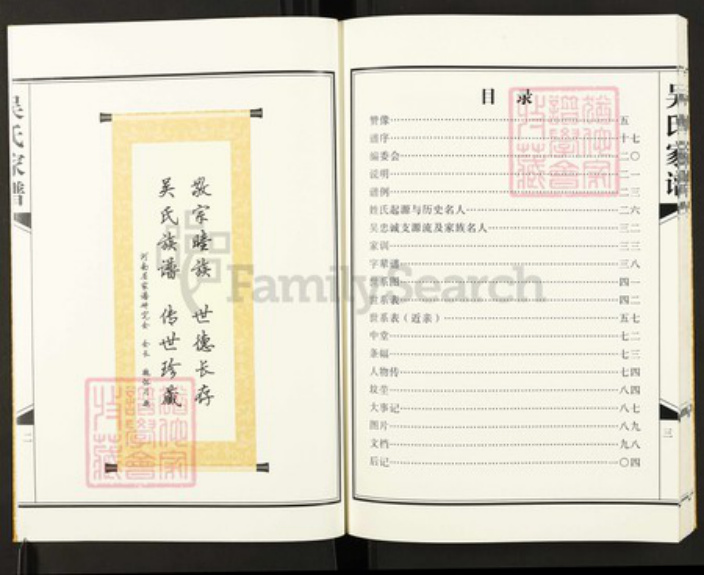 吴氏家谱
敬宗睦族 世德长存
吴氏族谱 传世珍藏
河南省家谱研究会 会长
二
FamilySearch
目 录
赞像 五
谱序 十七
编委会 二〇
说明 二一
谱例 二三
姓氏起源与历史名人 二六
吴忠诚支源流及家族名人 三二
家训 三三
字辈谱 三八
世系图 四一
世系表 四二
世系表（近亲） 五七
中堂 七二
条幅 七三
人物传 七四
坟茔 八四
大事记 八七
图片 八九
文档 九八
后记 〇四
吴氏家谱
三